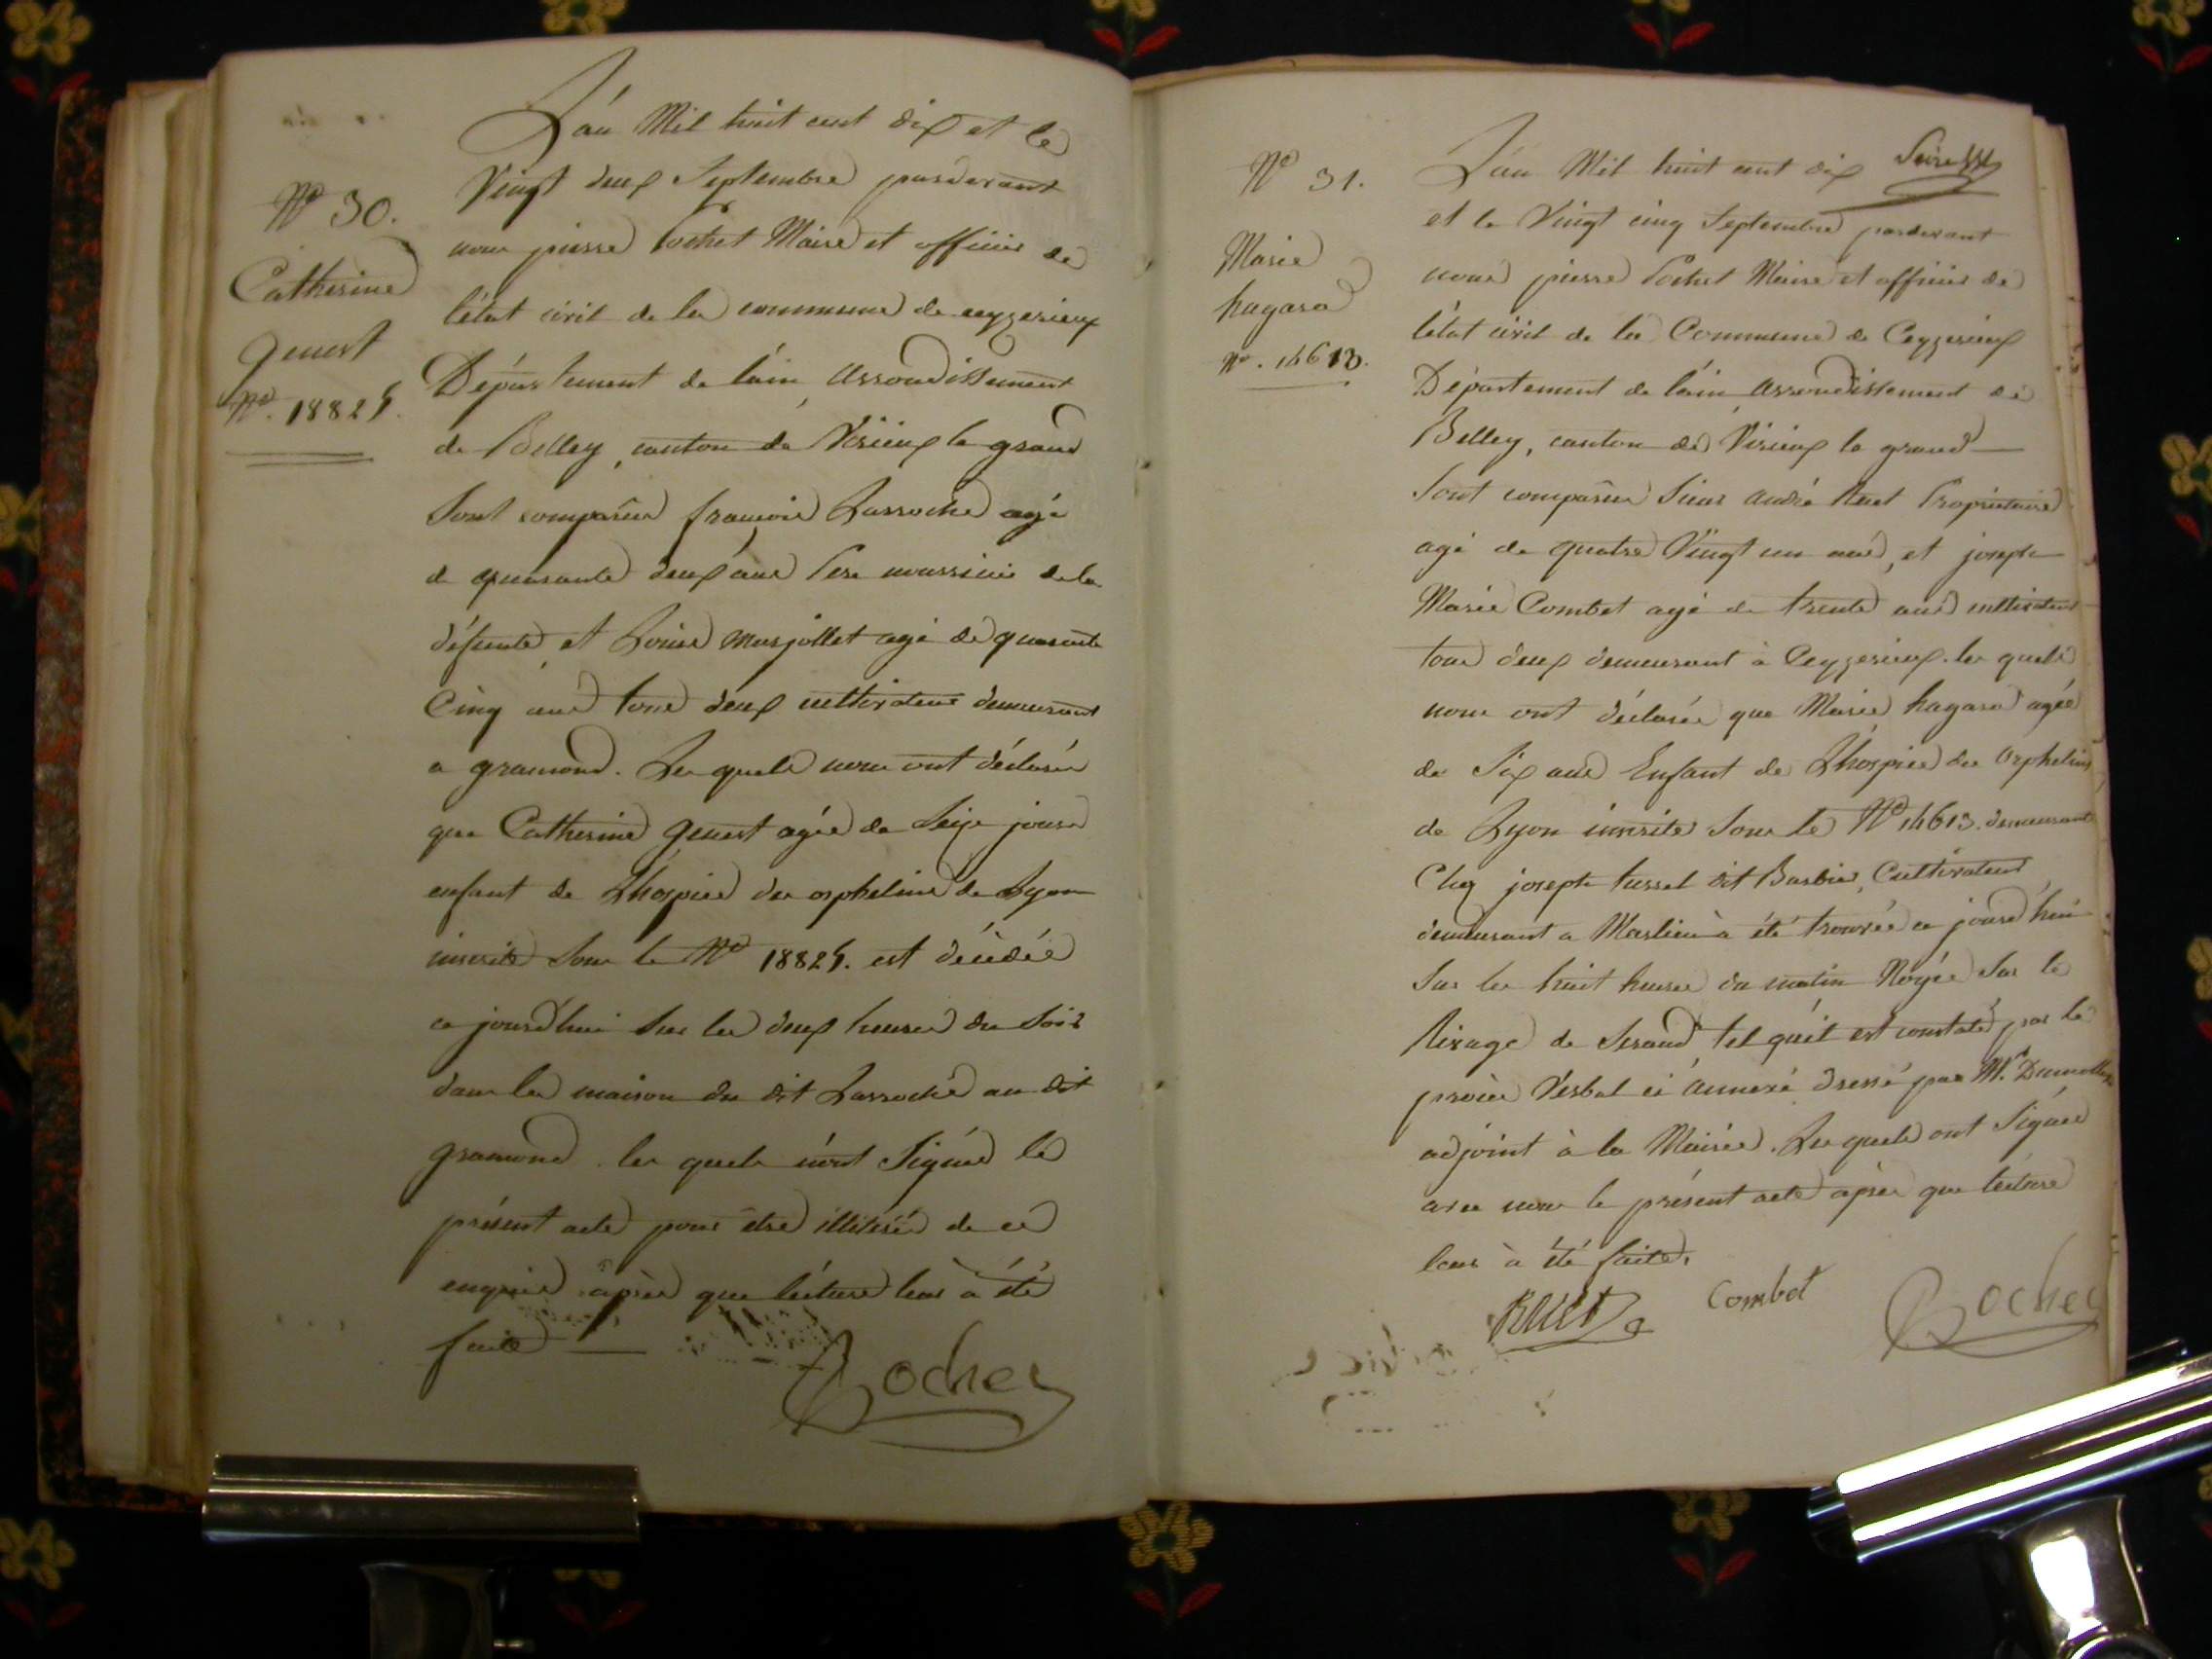 L'án Mil huit cent dix et le
N° 30.
Vingt deux Septembre pardevant
nous pierre Cochet Maire et officier de
Catherine
l'état civil de la commune de ceyzerieux
genest
Département de l'ain, Arrondissement
N°. 18825.
de Belley, canton de Virieux le grand
Sont comparus francois Larroche agé
de quarante deux ans Pere nourricier de la
défunte, et Louis marjollet agé de quarente
Cinq ans tous deux cultivateurs demeurant
a gramond. Les quels nous ont déclarés
que Catherine genest agée de Seize jours
enfant de L'hospice des orphelins de Lyon
inscrite Sous le N° 18825. est décédée
ce jourd'hui Sur les deux heures du Soir
dans la maison du dit Larroche au dit
gramond. les quels n'ont Signés le
présent acte pour être illitérés de ce
enquis après que lécture leur à été
faite
Cochet
N° 31.
L'án Mil huit cent dix
et le Vingt cinq Septembre pardevant
Marie
nous pierre Cochet Maire et officier de
hagard
l'état civil de la Commune de Ceyzerieux
N°. 14613.
Département de l'ain Arrondissement de
Belley, canton de Virieux le grand
Sont comparus Sieur andré Ruet Propriétaire
agé de quatre Vingt un ans, et joseph
Marie Combet agé de trente ans cultivateur
tous deux demeurant à Ceyzerieux. les quels
nous ont déclarés que Marie hagard agée
de Six ans Enfant de L'hospice des Orphelins
de Lyon inscrite Sous le N° 14613. demeurant
Chez joseph tussel dit Barbier, Cultivateur
demeurant a Marlieu à été trouvée ce jourd'hui
Sur les huit heures du matin Noyée Sur le
Rivage de Seraud, tel qu'il est constaté par le
procès Verbal ci annexé dressé par Mr. Dumollard
adjoint à la Mairie. Les quels ont Signés
avec nous le présent acte après que lécture
leur à été faite.
Ruet
Combet
Cochet